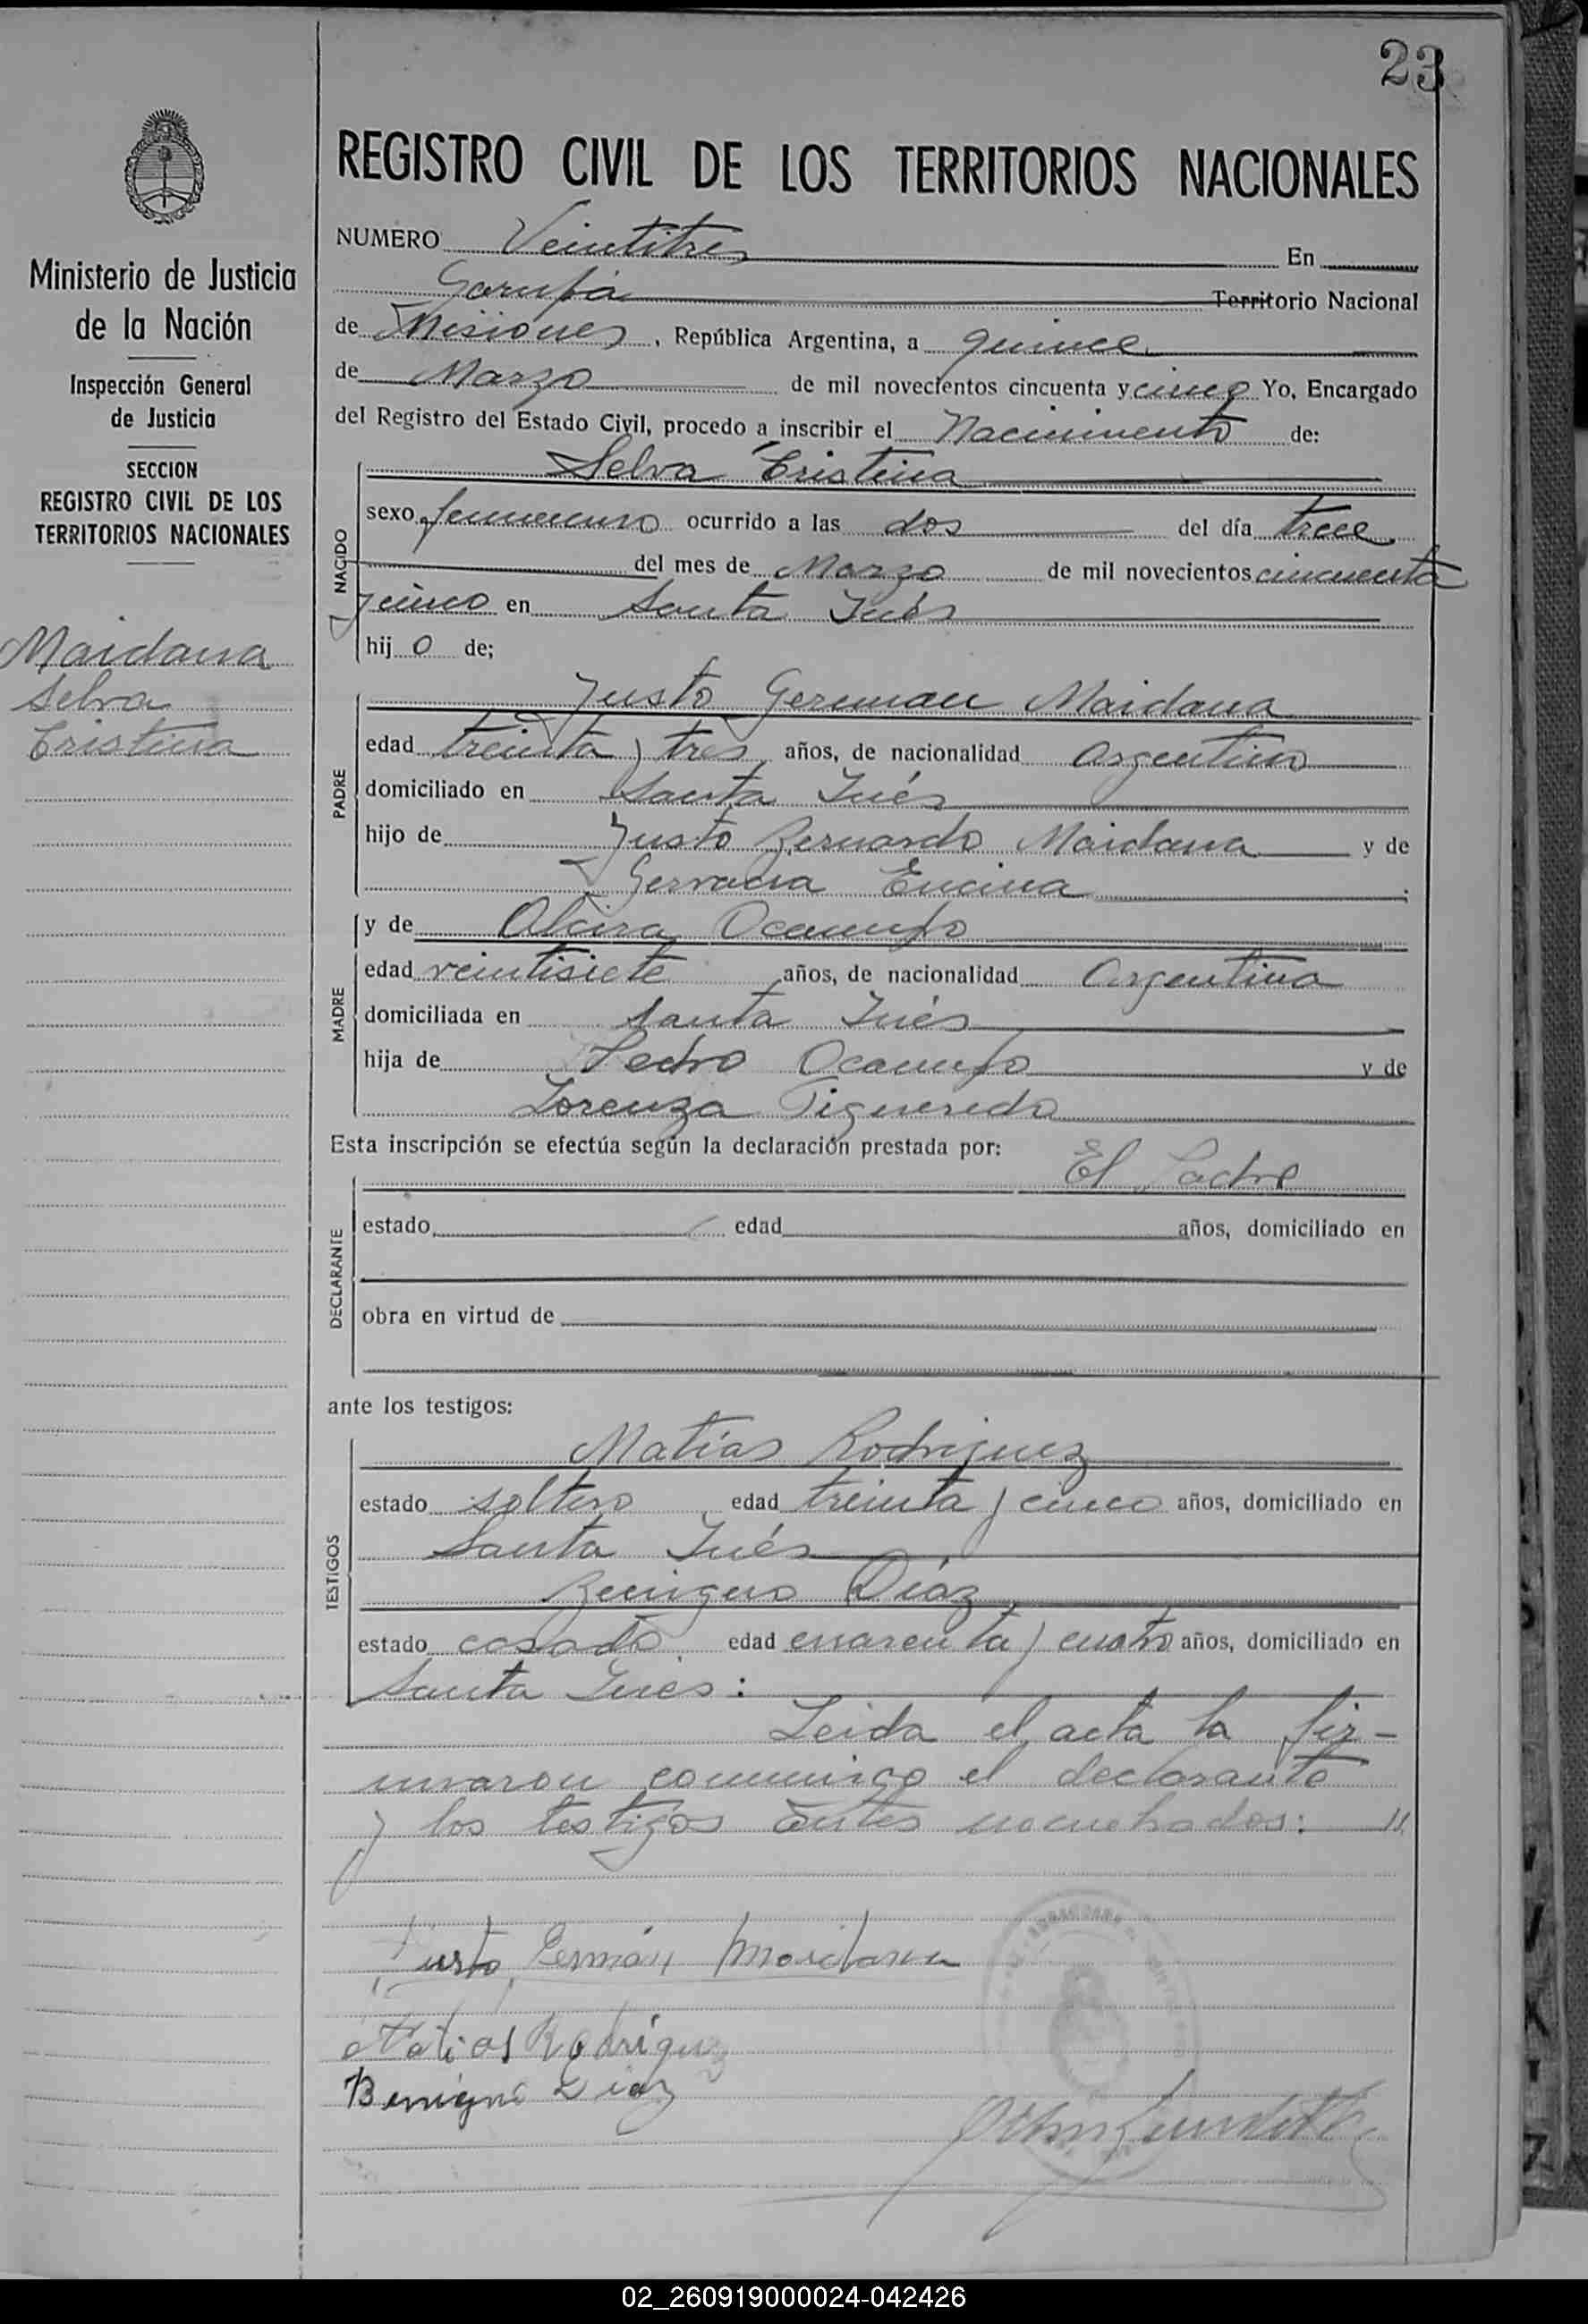 23
REGISTRO CIVIL DE LOS TERRITORIOS NACIONALES
Ministerio de Justicia
de la Nación
Inspección General
de Justicia
SECCION
REGISTRO CIVIL DE LOS
TERRITORIOS NACIONALES
Maidana
Selva
Cristina
NUMERO Veintitres En
Garupá Territorio Nacional
de Misiones, República Argentina, a quince
de Marzo de mil novecientos cincuenta y cinco Yo, Encargado
del Registro del Estado Civil, procedo a inscribir el Nacimiento de:
NACIDO
Selva Cristina
sexo femenino ocurrido a las dos del día trece
del mes de Marzo de mil novecientos cincuenta
y cinco en Santa Inés
hij o de;
PADRE
Justo German Maidana
edad treinta y tres años, de nacionalidad argentino
domiciliado en Santa Inés
hijo de Justo Bernardo Maidana y de
Gervacia Encina
MADRE
y de Alcira Ocampo
edad veintisiete años, de nacionalidad Argentina
domiciliada en Santa Inés
hija de Pedro Ocampo y de
Lorenza Figueredo
Esta inscripción se efectúa según la declaración prestada por:
DECLARANTE
El Padre
estado edad años, domiciliado en
obra en virtud de
ante los testigos:
TESTIGOS
Matías Rodriguez
estado soltero edad treinta y cinco años, domiciliado en
Santa Inés
Benigno Díaz
estado casado edad cuarenta y cuatro años, domiciliado en
Santa Inés:
Leida el acta la fir-
maron conmigo el declarante
y los testigos antes nombrados:
Justo Germán Maidana
Matias Rodriguez
Benigno Diaz
02_260919000024-042426